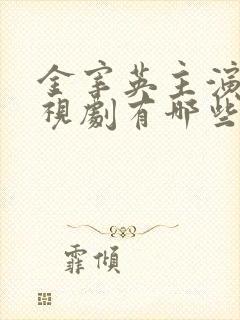 金宰英主演
視劇有哪些
霏傾